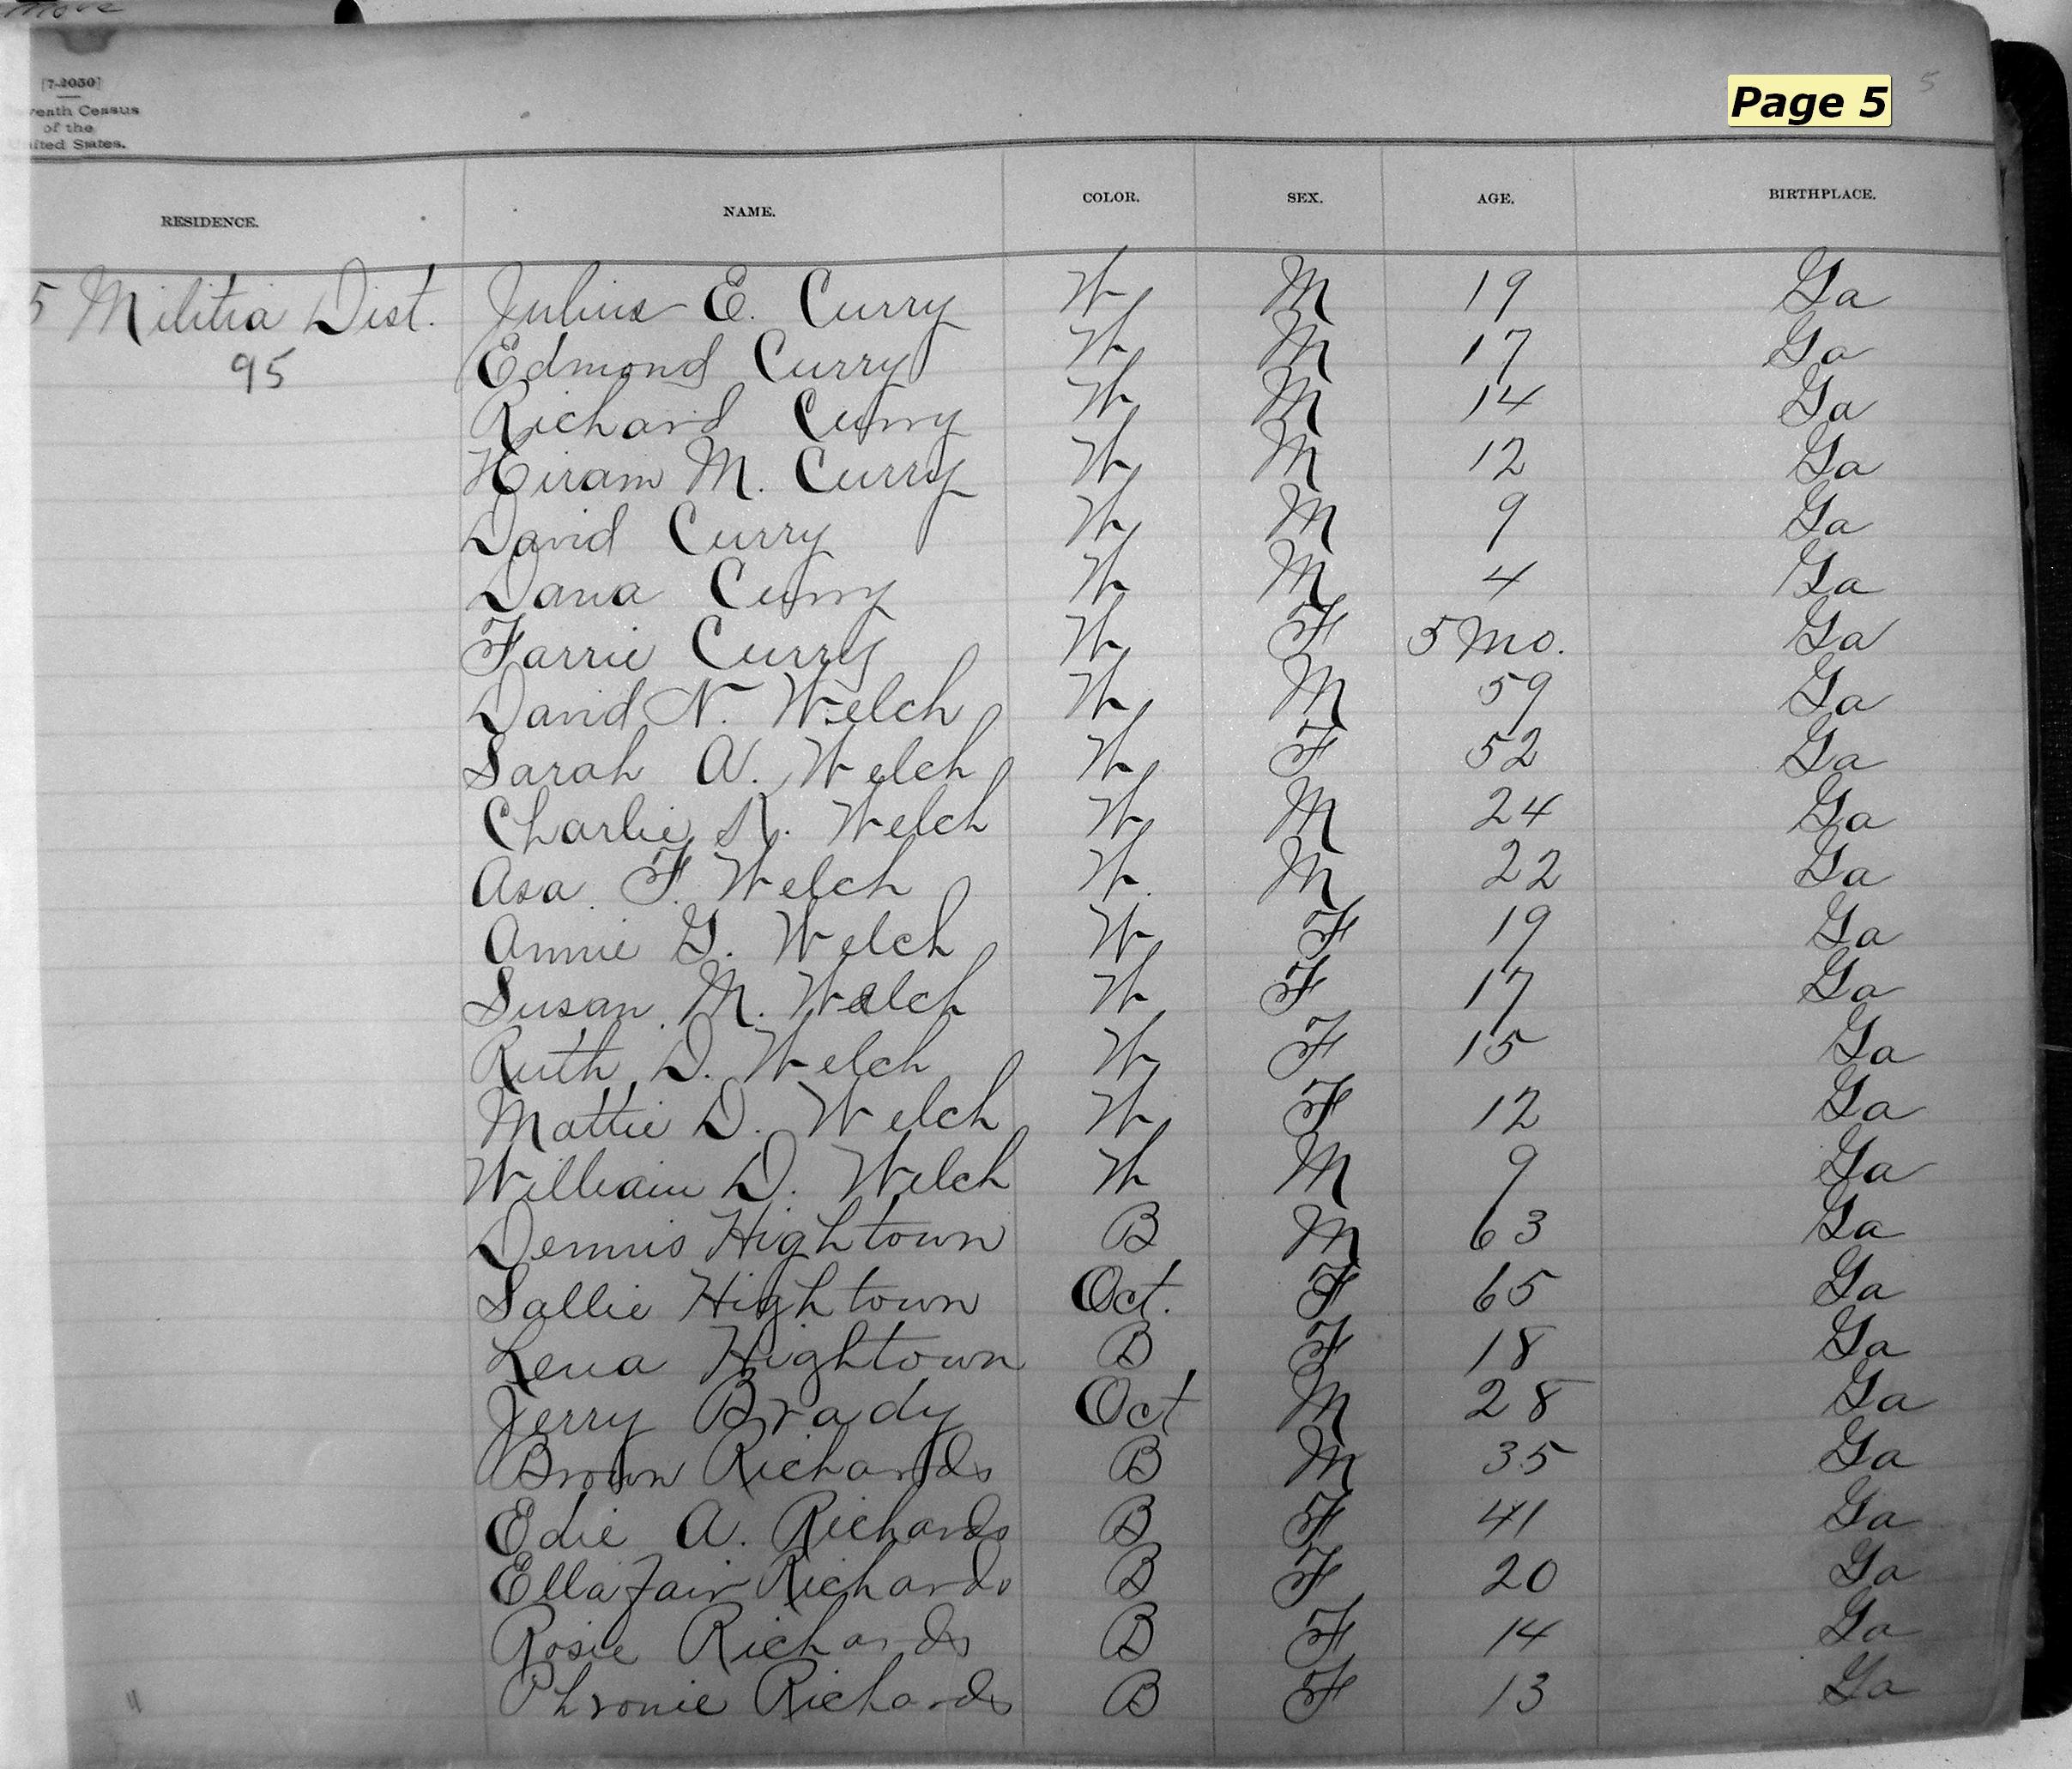 move
[7-2050]
of the
States.
Page 5
5
RESIDENCE. NAME. COLOR. SEX. AGE. BIRTHPLACE.
5 Militia Dist. Julius E. Curry W M 19 Ga
95 Edmond Curry W M 17 Ga
Richard Curry W M 14 Ga
Hiram M. Curry W M 12 Ga
David Curry W M 9 Ga
Dana Curry W M 4 Ga
Farrie Curry W F 5 Mo. Ga
David N. Welch W M 59 Ga
Sarah A. Welch W F 52 Ga
Charlie R. Welch W M 24 Ga
Asa F. Welch W. M 22 Ga
Annie G. Welch W F 19 Ga
Susan M. Welch W F 17 Ga
Ruth D. Welch W F 15 Ga
Mattie D. Welch W F 12 Ga
William D. Welch W M 9 Ga
Dennis Hightown B M 63 Ga
Sallie Hightown Oct. F 65 Ga
Lena Hightown B F 18 Ga
Jerry Brady Oct M 28 Ga
Brown Richards B M 35 Ga
Edie A. Richards B F 41 Ga
Ella Fair Richards B F 20 Ga
Rosie Richards B F 14 Ga
Phronie Richards B F 13 Ga